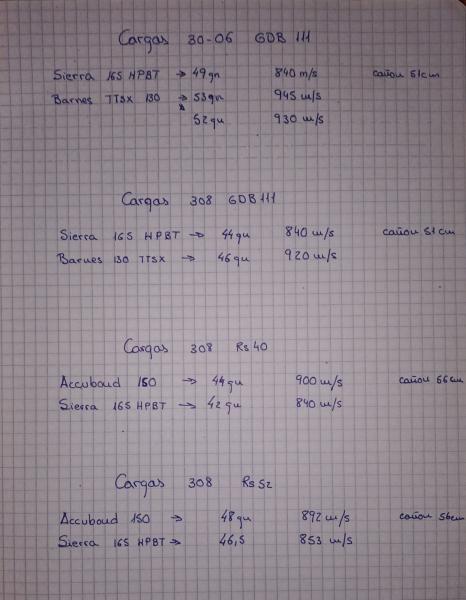 Cargas 30-06 GDB 111
Sierra 165 HPBT → 49gn 840 m/s cañon 51cm
Barnes TTSX 130 → 53gn 945 m/s
52gn 930 m/s
Cargas 308 GDB 111
Sierra 165 HPBT → 44gn 840 m/s cañon 51cm
Barnes 130 TTSX → 46gn 920 m/s
Cargas 308 Rs 40
Accubond 150 → 44gn 900 m/s cañon 56cm
Sierra 165 HPBT → 42gn 840 m/s
Cargas 308 Rs 52
Accubond 150 → 48gn 892 m/s cañon 56cm
Sierra 165 HPBT → 46,5 853 m/s